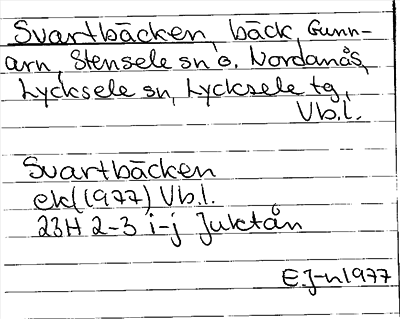 Svartbäcken, bäck, Gunn-
arn, Stensele sn o. Nordanås,
Lycksele sn, Lycksele tg,
Vb.l.
Svartbäcken
ek (1977) Vb.l.
23H 2-3 i-j Juktån
E.J-n 1977